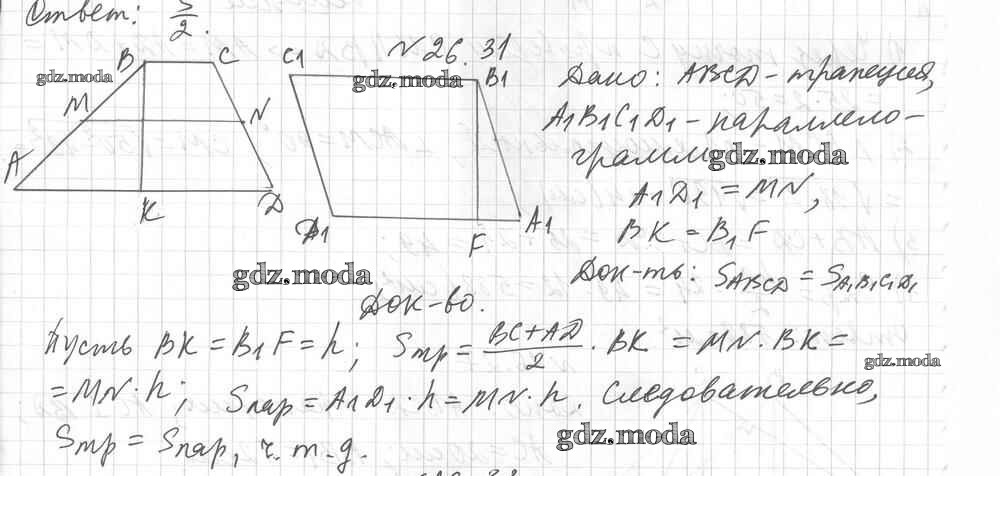 Ответ: 5/2.
№ 26.31
B C C1 B1
M N
A K D D1 F A1
Дано: ABCD - трапеция,
A1B1C1D1 - параллело-
грамм
A1D1 = MN,
BK = B1F
Док-ть: SABCD = SA1B1C1D1
Док-во.
Пусть BK = B1F = h; Sтр = (BC+AD)/2 · BK = MN · BK =
= MN · h; Sпар = A1D1 · h = MN · h. Следовательно,
Sтр = Sпар, ч. т. д.
gdz.moda
gdz.moda
gdz.moda
gdz.moda
gdz.moda
gdz.moda